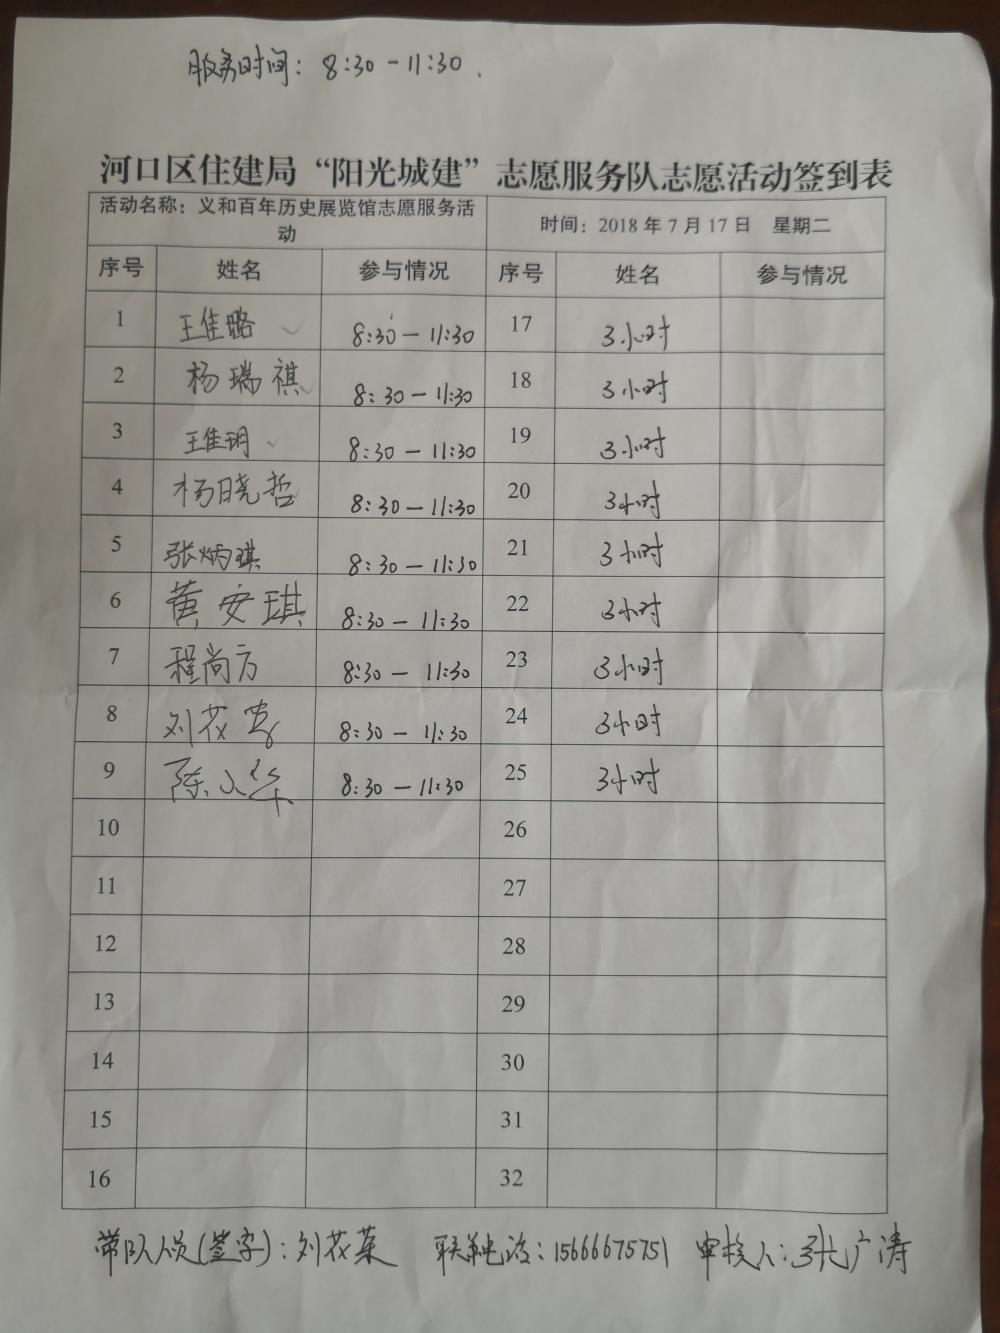 服务时间：8:30-11:30.
河口区住建局“阳光城建”志愿服务队志愿活动签到表
活动名称：义和百年历史展览馆志愿服务活动 时间：2018年7月17日 星期二
序号 姓名 参与情况 序号 姓名 参与情况
1 王佳璐 8:30-11:30 17 3小时
2 杨瑞祺 8:30-11:30 18 3小时
3 王佳玥 8:30-11:30 19 3小时
4 杨晓哲 8:30-11:30 20 3小时
5 张炳琪 8:30-11:30 21 3小时
6 黄安琪 8:30-11:30 22 3小时
7 程尚方 8:30-11:30 23 3小时
8 刘花 8:30-11:30 24 3小时
9 陈 华 8:30-11:30 25 3小时
10 26
11 27
12 28
13 29
14 30
15 31
16 32
带队人员(签字)：刘花菜 联系电话：15666675751 审核人：张广涛